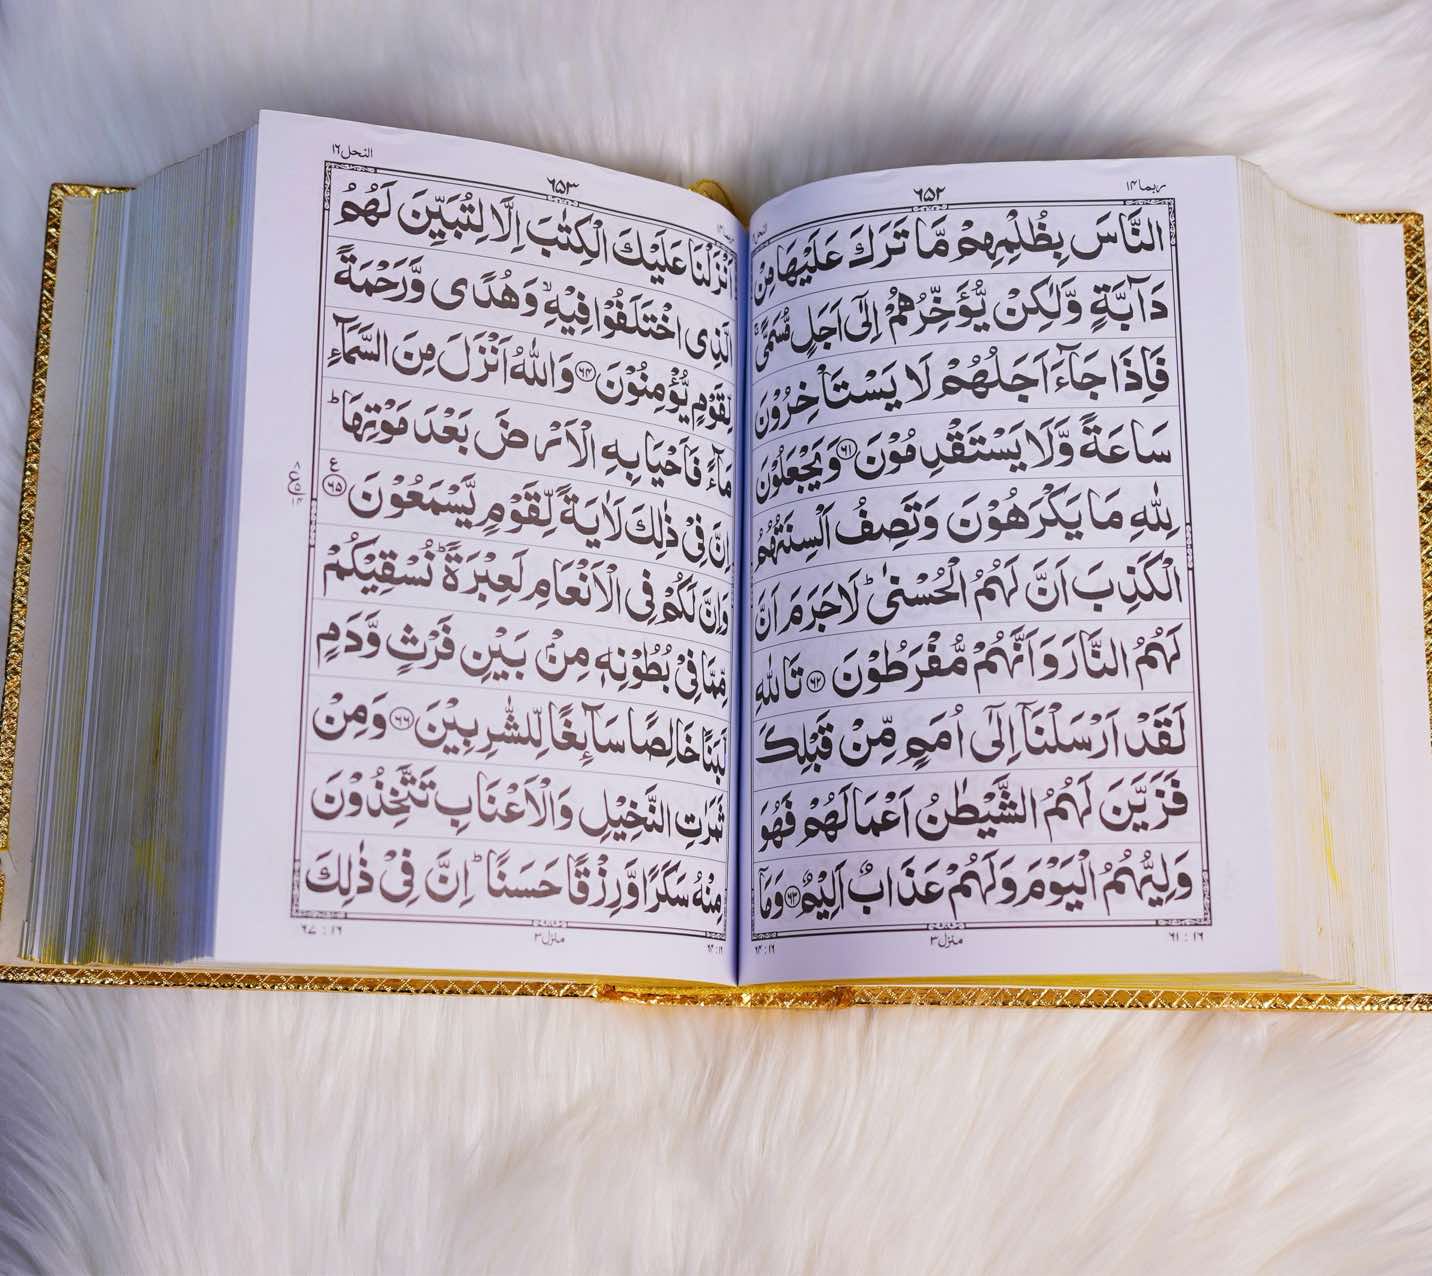 ربما ١٤
٦٥٢
النَّاسَ بِظُلْمِهِمْ مَّا تَرَكَ عَلَيْهَا مِنْ
دَآبَّةٍ وَّلٰكِنْ يُّؤَخِّرُهُمْ اِلٰٓى اَجَلٍ مُّسَمًّىۚ
فَاِذَا جَآءَ اَجَلُهُمْ لَا يَسْتَاْخِرُوْنَ
سَاعَةً وَّلَا يَسْتَقْدِمُوْنَ ﴿٦١﴾ وَيَجْعَلُوْنَ
لِلّٰهِ مَا يَكْرَهُوْنَ وَتَصِفُ اَلْسِنَتُهُمُ
الْكَذِبَ اَنَّ لَهُمُ الْحُسْنٰىؕ لَا جَرَمَ اَنَّ
لَهُمُ النَّارَ وَاَنَّهُمْ مُّفْرَطُوْنَ ﴿٦٢﴾ تَاللّٰهِ
لَقَدْ اَرْسَلْنَاۤ اِلٰٓى اُمَمٍ مِّنْ قَبْلِكَ
فَزَيَّنَ لَهُمُ الشَّيْطٰنُ اَعْمَالَهُمْ فَهُوَ
وَلِيُّهُمُ الْيَوْمَ وَلَهُمْ عَذَابٌ اَلِيْمٌ ﴿٦٣﴾ وَمَاۤ
١٦ : ٦١
منزل ٣
١٦ : ٦٤
النحل ١٦
٦٥٣
اَنْزَلْنَا عَلَيْكَ الْكِتٰبَ اِلَّا لِتُبَيِّنَ لَهُمُ
الَّذِى اخْتَلَفُوْا فِيْهِۙ وَهُدًى وَّرَحْمَةً
لِّقَوْمٍ يُّؤْمِنُوْنَ ﴿٦٤﴾ وَاللّٰهُ اَنْزَلَ مِنَ السَّمَآءِ
مَآءً فَاَحْيَا بِهِ الْاَرْضَ بَعْدَ مَوْتِهَاؕ
اِنَّ فِىْ ذٰلِكَ لَاٰيَةً لِّقَوْمٍ يَّسْمَعُوْنَ ﴿٦٥﴾ ع
وَاِنَّ لَكُمْ فِى الْاَنْعَامِ لَعِبْرَةًؕ نُسْقِيْكُمْ
مِّمَّا فِىْ بُطُوْنِهٖ مِنْۢ بَيْنِ فَرْثٍ وَّدَمٍ
لَّبَنًا خَالِصًا سَآئِغًا لِّلشّٰرِبِيْنَ ﴿٦٦﴾ وَمِنْ
ثَمَرٰتِ النَّخِيْلِ وَالْاَعْنَابِ تَتَّخِذُوْنَ
مِنْهُ سَكَرًا وَّرِزْقًا حَسَنًاؕ اِنَّ فِىْ ذٰلِكَ
١٦ : ٦٤
منزل ٣
١٦ : ٦٧